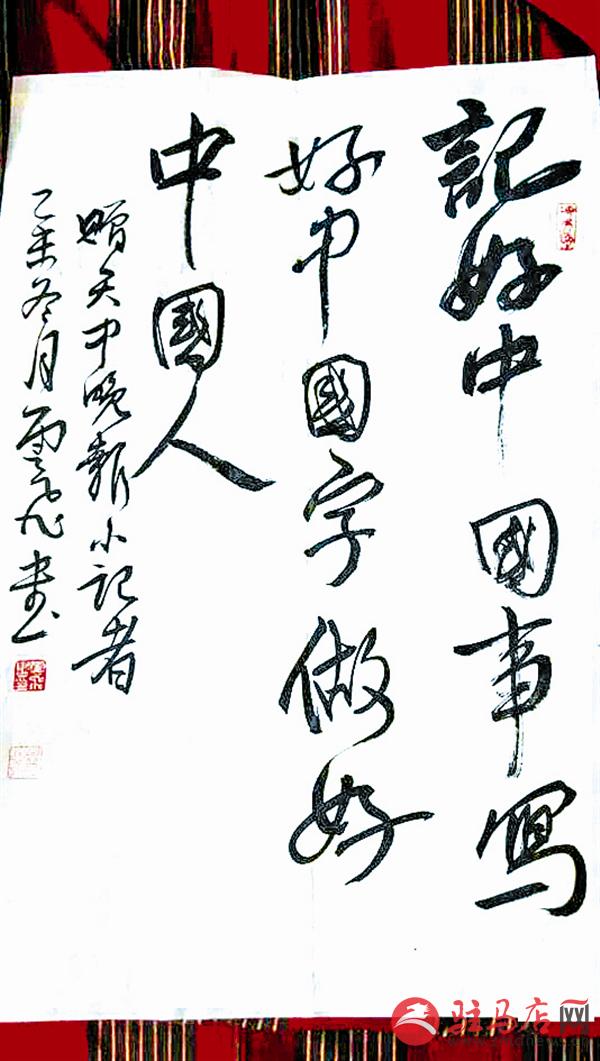 記好中國事寫
好中國字做好
中國人
贈天中晚報小記者
乙未冬月雲飛書
驻马店网